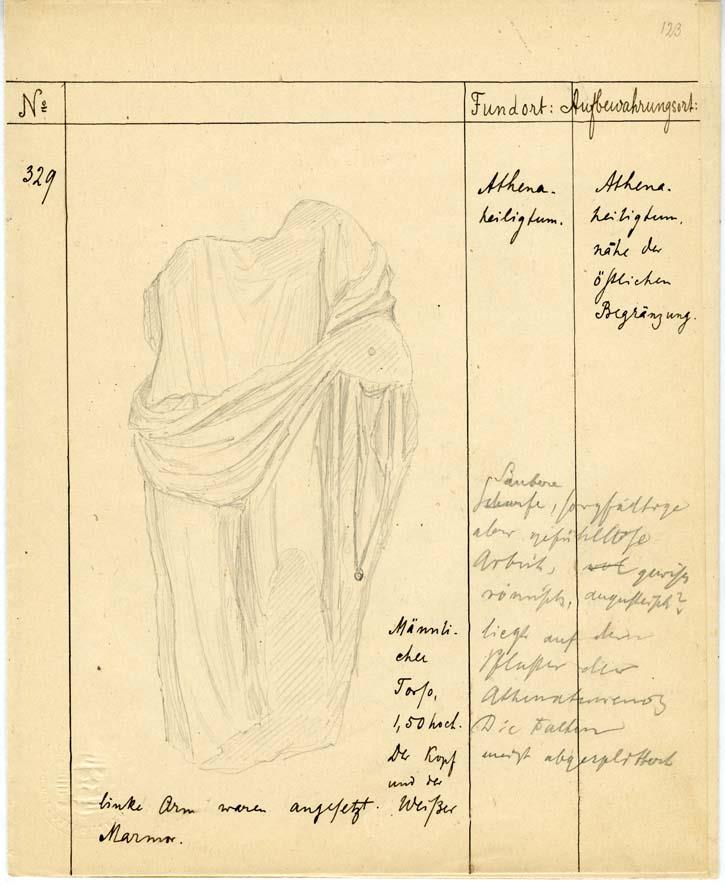 123
Nº
Fundort: Aufbewahrungsort:
329
Athena-
heiligtum.
Athena-
heiligtum,
nähe der
östlichen
Begränzung.
Saubere
scharfe, sorgfältige
aber gefühllose
Arbeit, gewiss
römisch, augusteisch?
liegt auf dem
Pflaster der
Athenaterrasse
Die Falten
meist abgesplittert
Männli-
cher
Torso,
1,50 hoch.
Der Kopf
und der
linke Arm waren angesetzt. Weißer
Marmor.